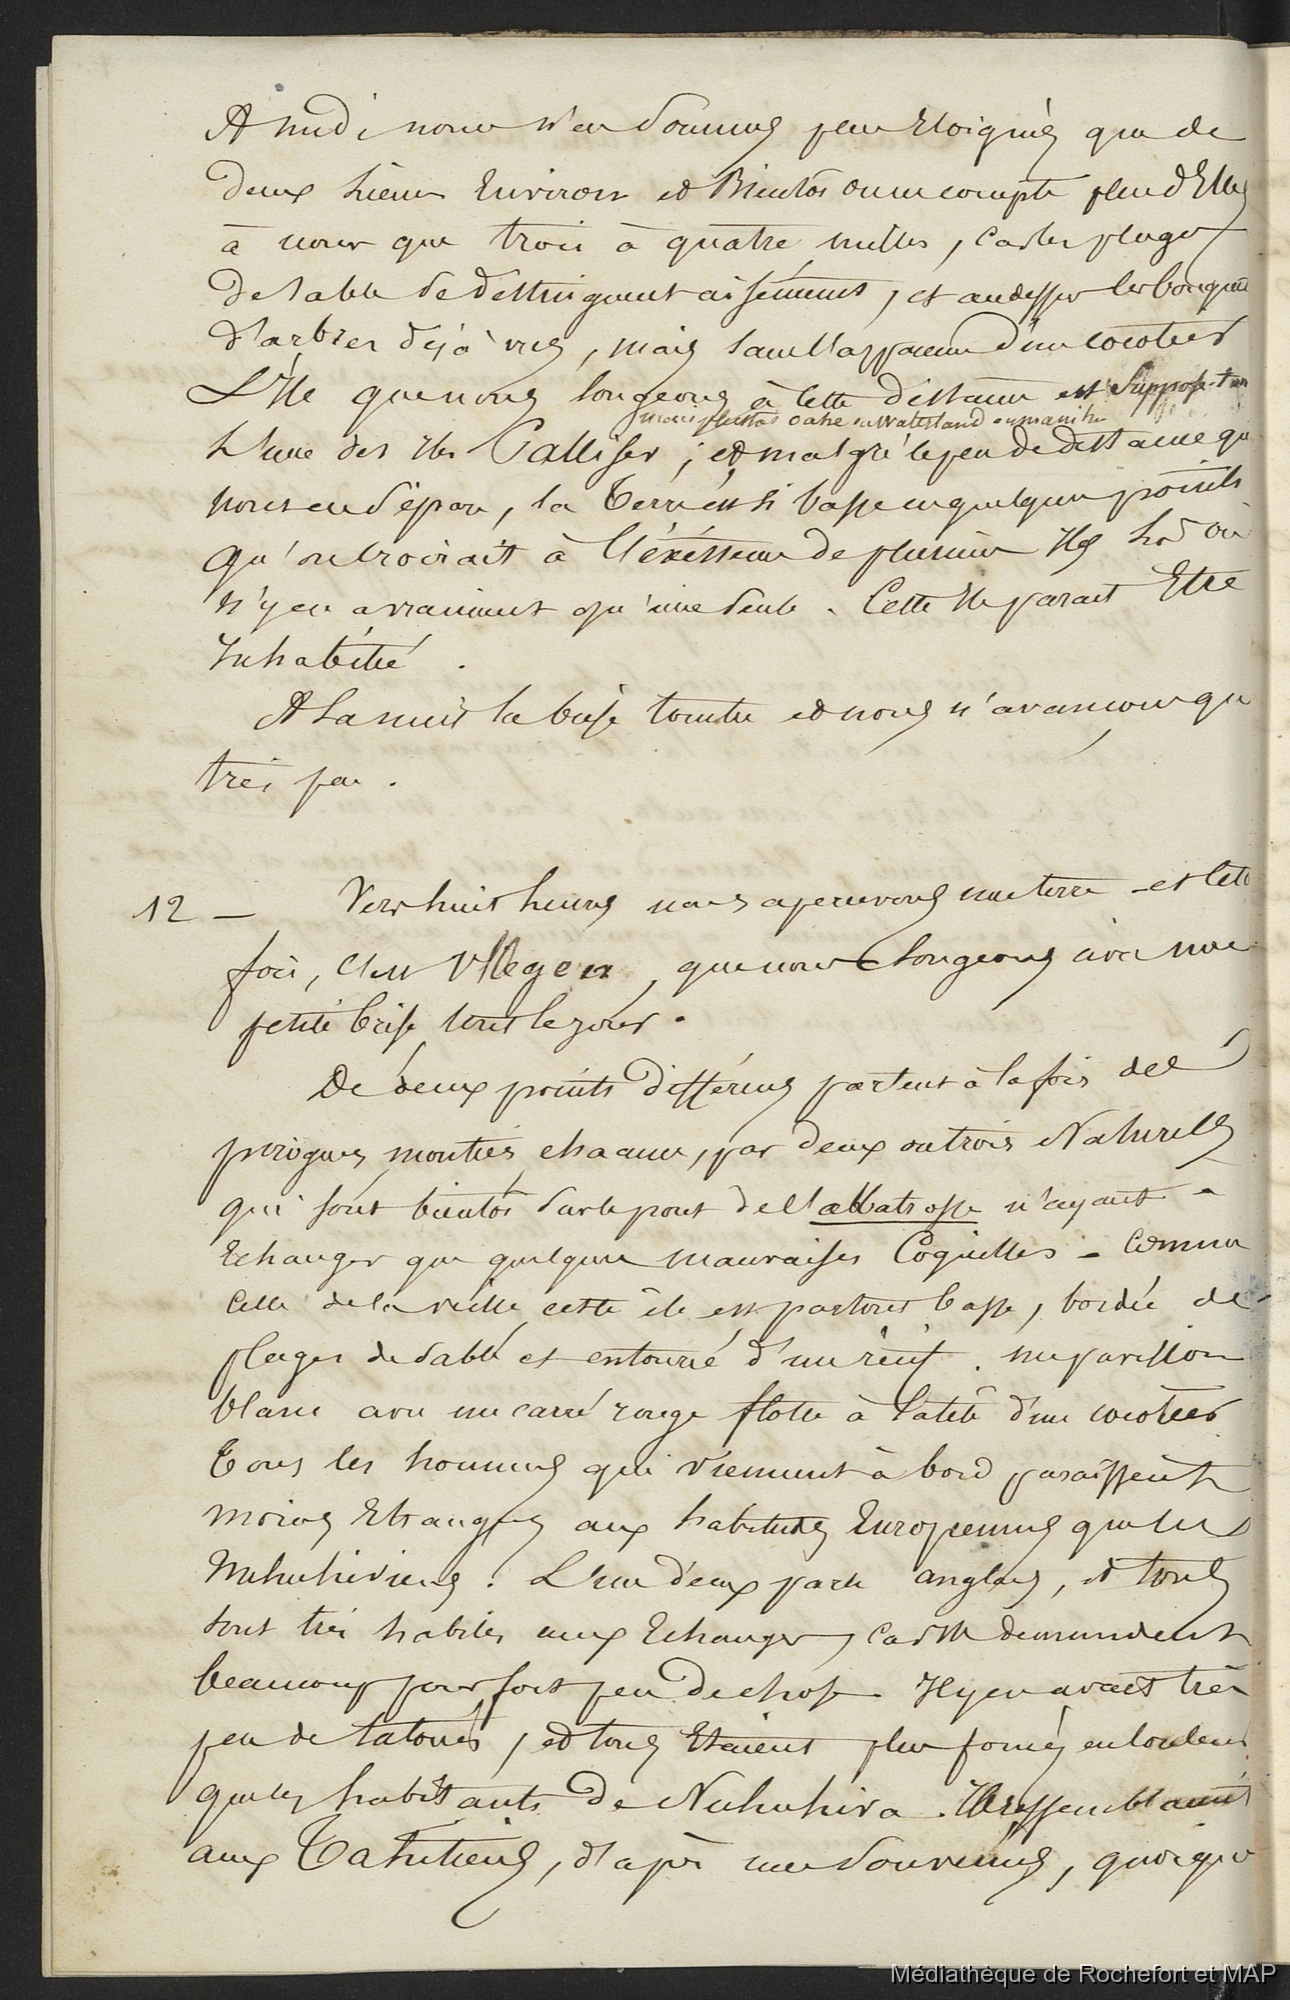 A midi nous n'en sommes peu Eloignés que de
deux lieues Environ et Bientôt on ne compte plus d'Elles
à nous que trois à quatre milles, car les plages
de sable se desttinguent aisément, et au dessus les bouquets
d'arbres déjà vus, mais sans l'apparence d'un cocotier
L'Ile que nous longeons à cette distance est suppose-t-on
mais plustôt oahe ou Waterland ou manihi
L'une des Iles Palliser ; et malgré le peu de distance qui
nous en sépare, la Terre est si basse en quelques points
qu'on croirait à l'éxistence de plusieurs Iles là où
n'y en a vraiment qu'une seule. Cette Ile parait Etre
Inhabitée.
A la nuit la brise tombe et nous n'avancons que
très peu.
12 — Vers huit heures nous apercevons une terre - et cette
fois, c'est Vllegen, que nous longeons avec une
petite brise tout le jour.
De deux points différens partent à la fois des
pirogues montées chacune, par deux ou trois Naturels
qui sont bientôt sur le pont de l'albatrosse n'ayant à
Echanger que quelques mauvaises Coquilles - Comme
celle de la veille cette île est partout basse, bordée de
plages de sable et entourée d'un récif. un pavillon
blanc avec un carré rouge flotte à la tête d'un cocotier
Tous les hommes qui viennent à bord paraissent
moins Etrangers aux habitudes Européennes que les
Nuhuhiviens. L'un d'eux parle anglais, et tous
sont très habiles aux Echanges, car Ils demandent
beaucoup pour fort peu de chose. Il y en avait très
peu de tatoués, et tous Etaient plus foncés en couleur
que les habitants de Nuhuhiva. Ils ressemblaient
aux Tahitiens, d'après mes souvenirs, quoique
Médiathèque de Rochefort et MAP